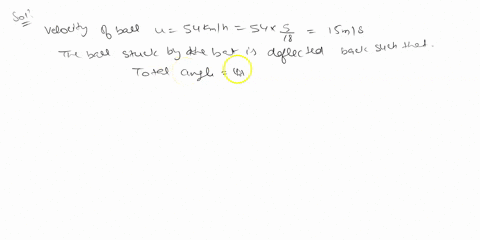 Sol:
Velocity of ball u = 54 km/h = 54 × 5/18 = 15 m/s
The ball stuck by the bat is deflected back such that.
Total angle =